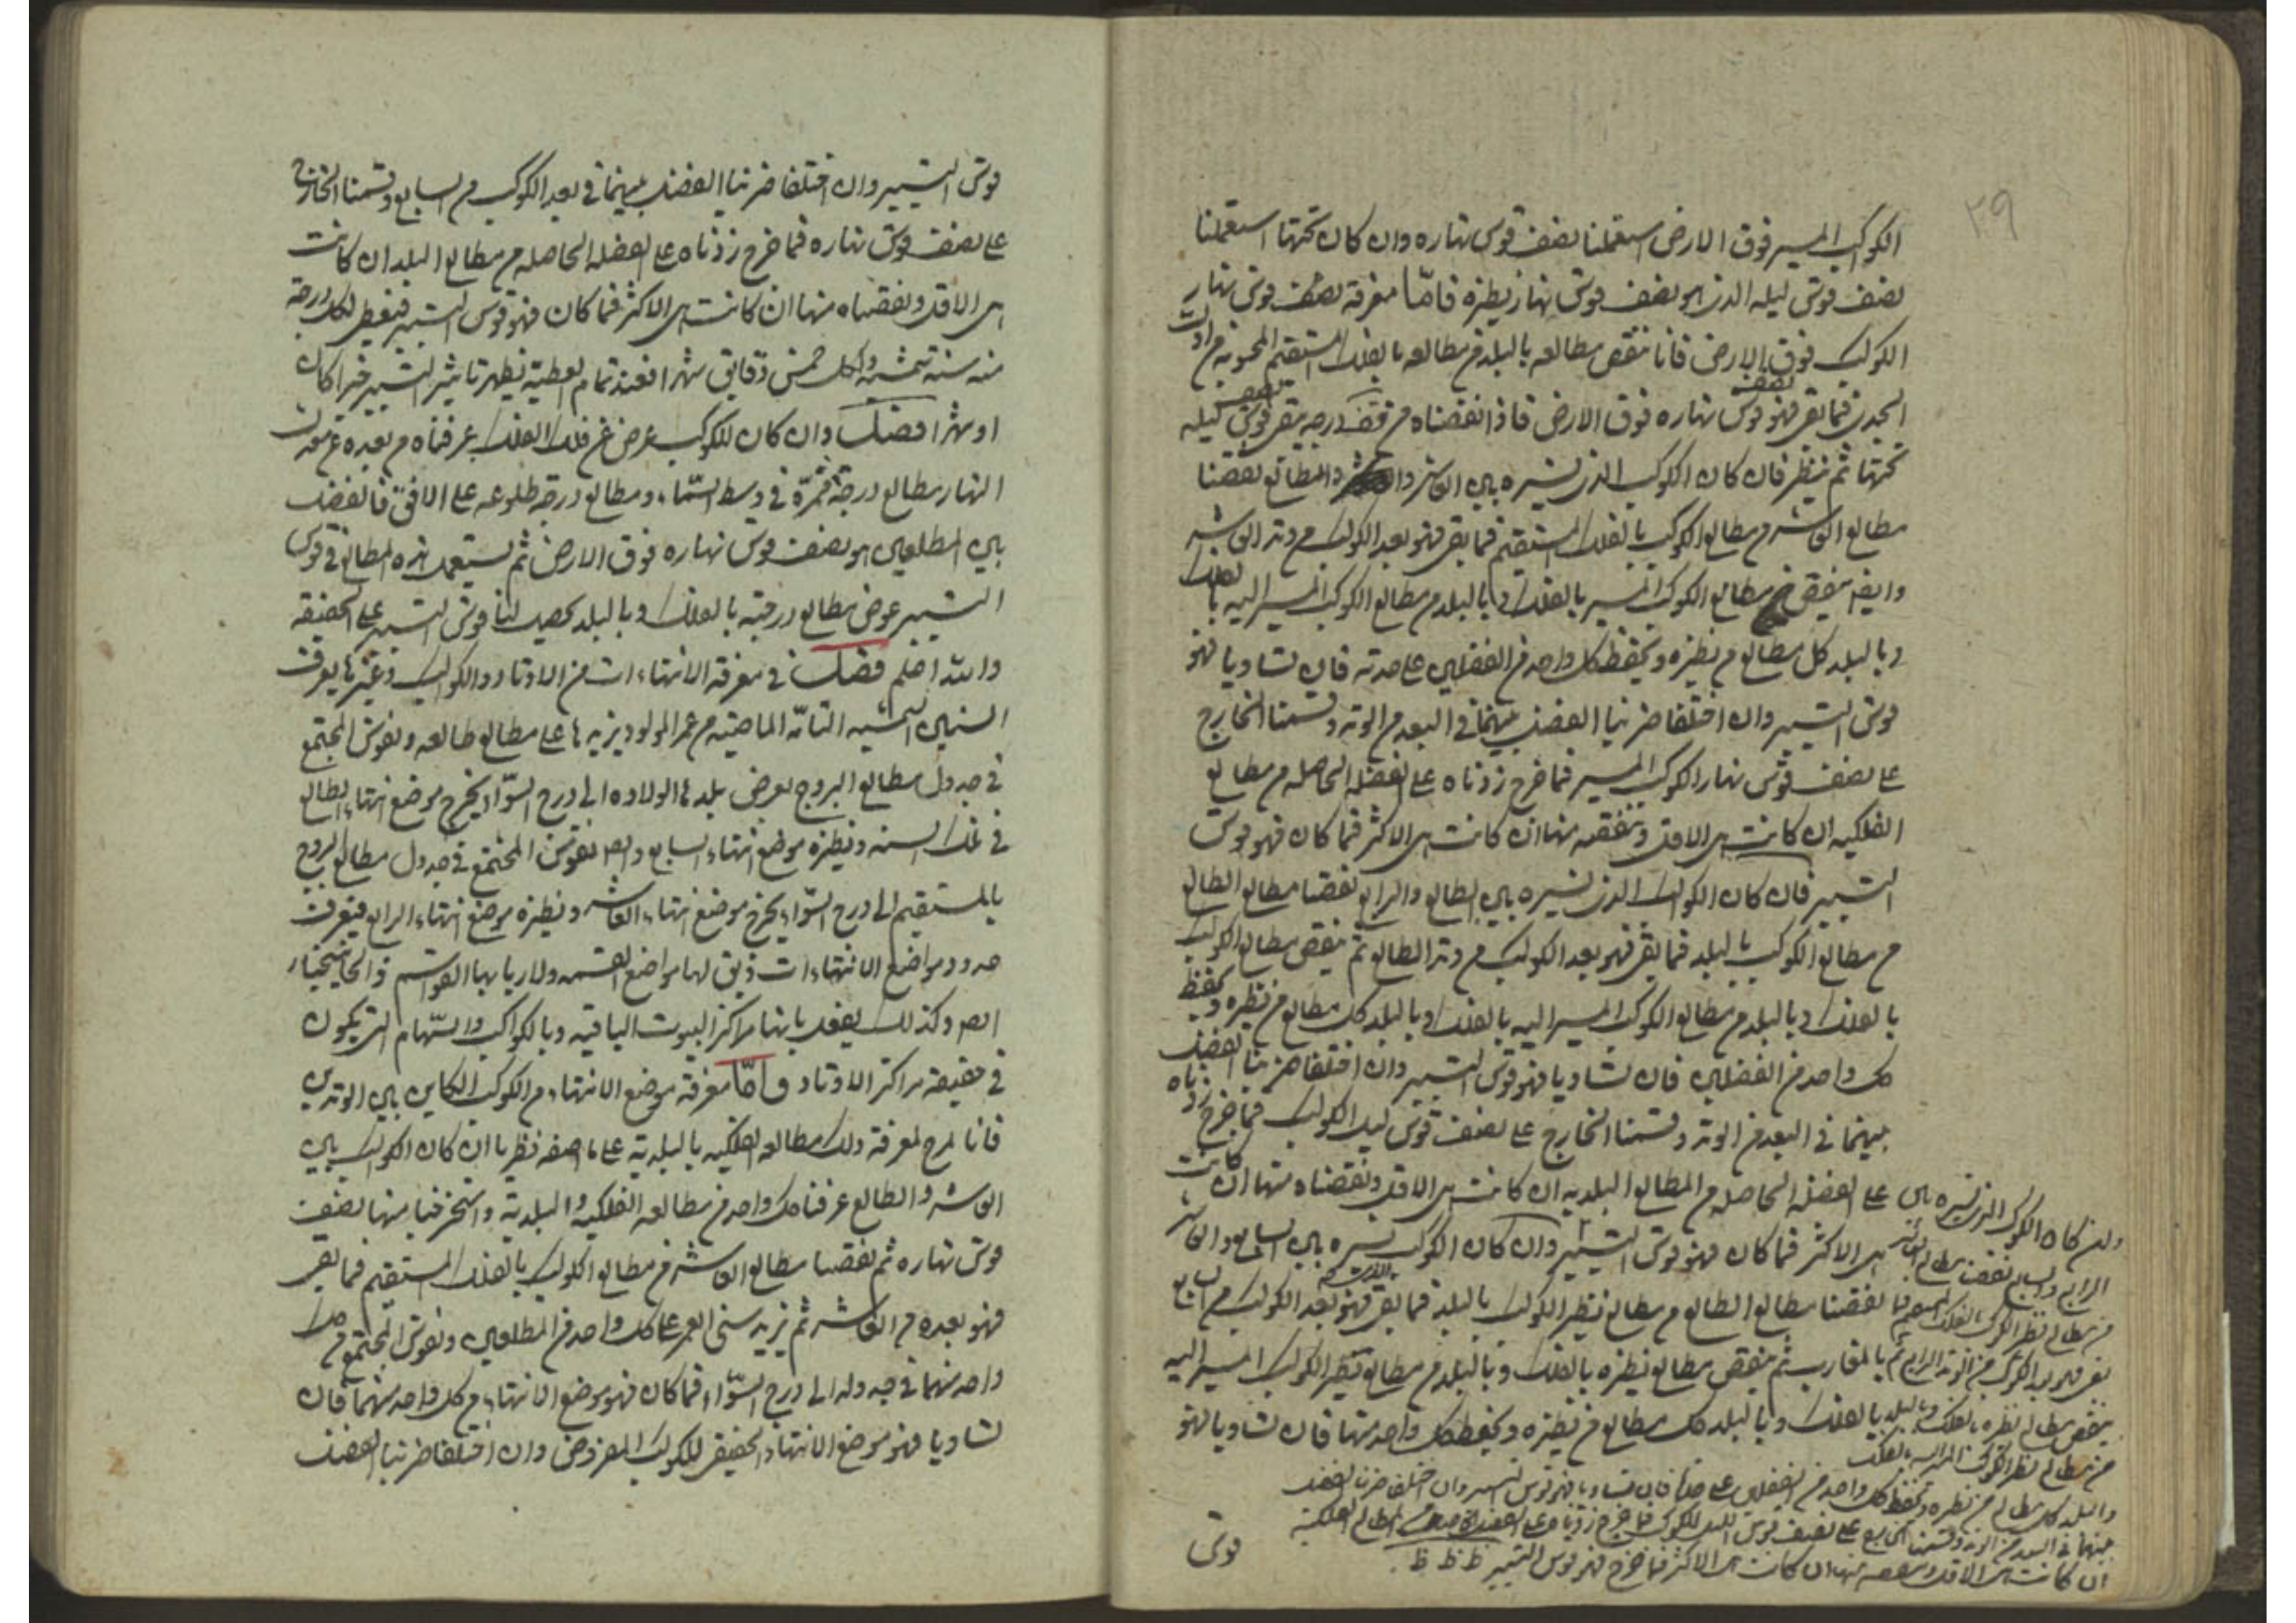 ٢٩
الكوكب المسير فوق الارض استعملنا نصف قوس نهاره وان كان تحتها استعملنا
نصف قوس ليله الذى هو نصف قوس نهار نظيره فامّا معرفة نصف قوس نهار
الكوكب فوق الارض فانا ننقص مطالعه بالبلد من مطالعه بالفلك المستقيم المحسوبه من اول
الجدى فما بقى فهو نصف قوس نهاره فوق الارض فاذا نقصناه من قف درجه بقى نصف قوس ليله
تحتها ثم ننظر فان كان الكوكب الذى نسيره بين العاشر والطالع نقصنا
مطالع العاشر من مطالع الكوكب بالفلك المستقيم فما بقى فهو بعد الكوكب من وتد العاشر
وايضا ينقص مطالع الكوكب المسير بالفلك وبالبلد من مطالع الكوكب المسير اليه بالفلك
وبالبلد كل مطالع من نظيره ويحفظ كل واحد من الفضلين على حدته فان تساويا فهو
قوس التسيير وان اختلفا ضربنا الفضل بينهما فى البعد من الوتد وقسمنا الخارج
على نصف قوس نهار الكوكب المسير فما خرج زدناه على الفضله الحاصله من مطالع
الفلكيه ان كانت هى الاقل وننقصه منها ان كانت هى الاكثر فما كان فهو قوس
التسيير فان كان الكوكب الذى نسيره بين الطالع والرابع نقصنا مطالع الطالع
من مطالع الكوكب بالبلد فما بقى فهو بعد الكوكب من وتد الطالع ثم ينقص مطالع الكوكب
بالفلك وبالبلد من مطالع الكوكب المسير اليه بالفلك وبالبلد كل مطالع من نظيره ويحفظ
كل واحد من الفضلين فان تساويا فهو قوس التسيير وان اختلفا ضربنا الفضل
بينهما فى البعد من الوتد وقسمنا الخارج على نصف قوس ليل الكوكب فما خرج زدناه
على الفضله الحاصله من المطالع البلديه ان كانت هى الاقل ونقصناه منها ان كانت
هى الاكثر فما كان فهو قوس التسيير وان كان الكوكب نسيره بين السابع والعاشر
نقصنا مطالع الطالع من مطالع نظير الكوكب بالبلد فما بقى فهو بعد الكوكب من السابع
بالمغارب ثم ينقص مطالع نظيره بالفلك وبالبلد من مطالع نظير الكوكب المسير اليه
بالفلك وبالبلد كل مطالع من نظيره ويحفظ كل واحد منها فان تساويا فهو
وان كان الكوكب الذى نسيره بين
الرابع والسابع نقصنا مطالع العاشر
من مطالع نظير الكوكب بالفلك المستقيم فما
بقى فهو بعد الكوكب من الوتد الرابع ثم
ينقص مطالع نظيره بالفلك وبالبلد
من مطالع نظير الكوكب المسير اليه بالفلك
وبالبلد كل مطالع من نظيره ويحفظ كل واحد من الفضلين على حدته فان تساويا فهو قوس التسيير وان اختلفا ضربنا الفضل
بينهما فى البعد من الوتد وقسمنا الخارج على نصف قوس الليل للكوكب فما خرج زدناه على الفضله الحاصله من المطالع الفلكية
ان كانت هى الاقل وننقصه منها ان كانت هى الاكثر فما خرج فهو قوس التسيير ظ ظ ظ
قوس
قوس التسيير وان اختلفا ضربنا الفضل بينهما فى بعد الكوكب من السابع وقسمنا الخارج
على نصف قوس نهاره فما خرج زدناه على الفضله الحاصله من مطالع البلد ان كانت
هى الاقل ونقصناه منها ان كانت هى الاكثر فما كان فهو قوس التسيير فيعطى لكل درجة
منه سنة شمسيه ولكل خمس دقايق شهرا فعند تمام العطية يظهر تاثير التسيير خيرا كان
او شرا فصل وان كان للكوكب عرض عن فلك الفلك عرفناه من بعده عن معدل
النهار مطالع درجة ممرّه فى وسط السّماء ومطالع درجه طلوعه على الافق فالفضل
بين المطلعين هو نصف قوس نهاره فوق الارض ثم يستعمل هذه المطالع فى قوس
التسيير عوض مطالع درجته بالفلك وبالبلد يحصل لنا قوس التسيير على الحقيقه
والله اعلم فصل فى معرفة الانتهاءات من الاوتاد والكواكب وغيرها يعرف
السنين الشمسيه التامّه الماضيه من عمر المولود يزيدها على مطالع طالعه ونقوس المجتمع
فى جدول مطالع البروج بعرض بلد الولاده الى درج السّواء يخرج موضع انتهاء الطالع
فى تلك السنه ونظيره موضع انتهاء السابع وايضا نقوس المجتمع فى جدول مطالع البروج
بالمستقيم الى درج السّواء يخرج موضع انتهاء العاشر ونظيره موضع انتهاء الرابع فيعرف
حدود مواضع الانتهاءات لها مواضع القسمه ولاربابها القواسم
ايضا وكذلك يفعل بانها مراكز البيوت الباقيه وبالكواكب والسّهام التى يكون
فى حقيقه مراكز الاوتاد وامّا معرفة موضع الانتهاء من الكوكب الكاين بين الوتدين
فانا لمعرفة ذلك مطالعه الفلكيه بالبلدية على ما اصفه نظرنا ان كان الكوكب بين
العاشر والطالع عرفنا كل واحد من مطالعه الفلكيه والبلدية واستخرجنا منها نصف
قوس نهاره ثم نقصنا مطالع العاشر من مطالع الكوكب بالفلك المستقيم فما بقى
فهو بعده من العاشر ثم نزيد سنى العمر على كل واحد من المطلعين ونقوس المجتمع من كل
واحد منهما فى جدوله الى درج السّواء فما كان فهو موضع الانتهاء من كل واحد منهما فان
تساويا فهو موضع الانتهاء الحقيقى للكوكب المفروض وان اختلفا ضربنا الفضل